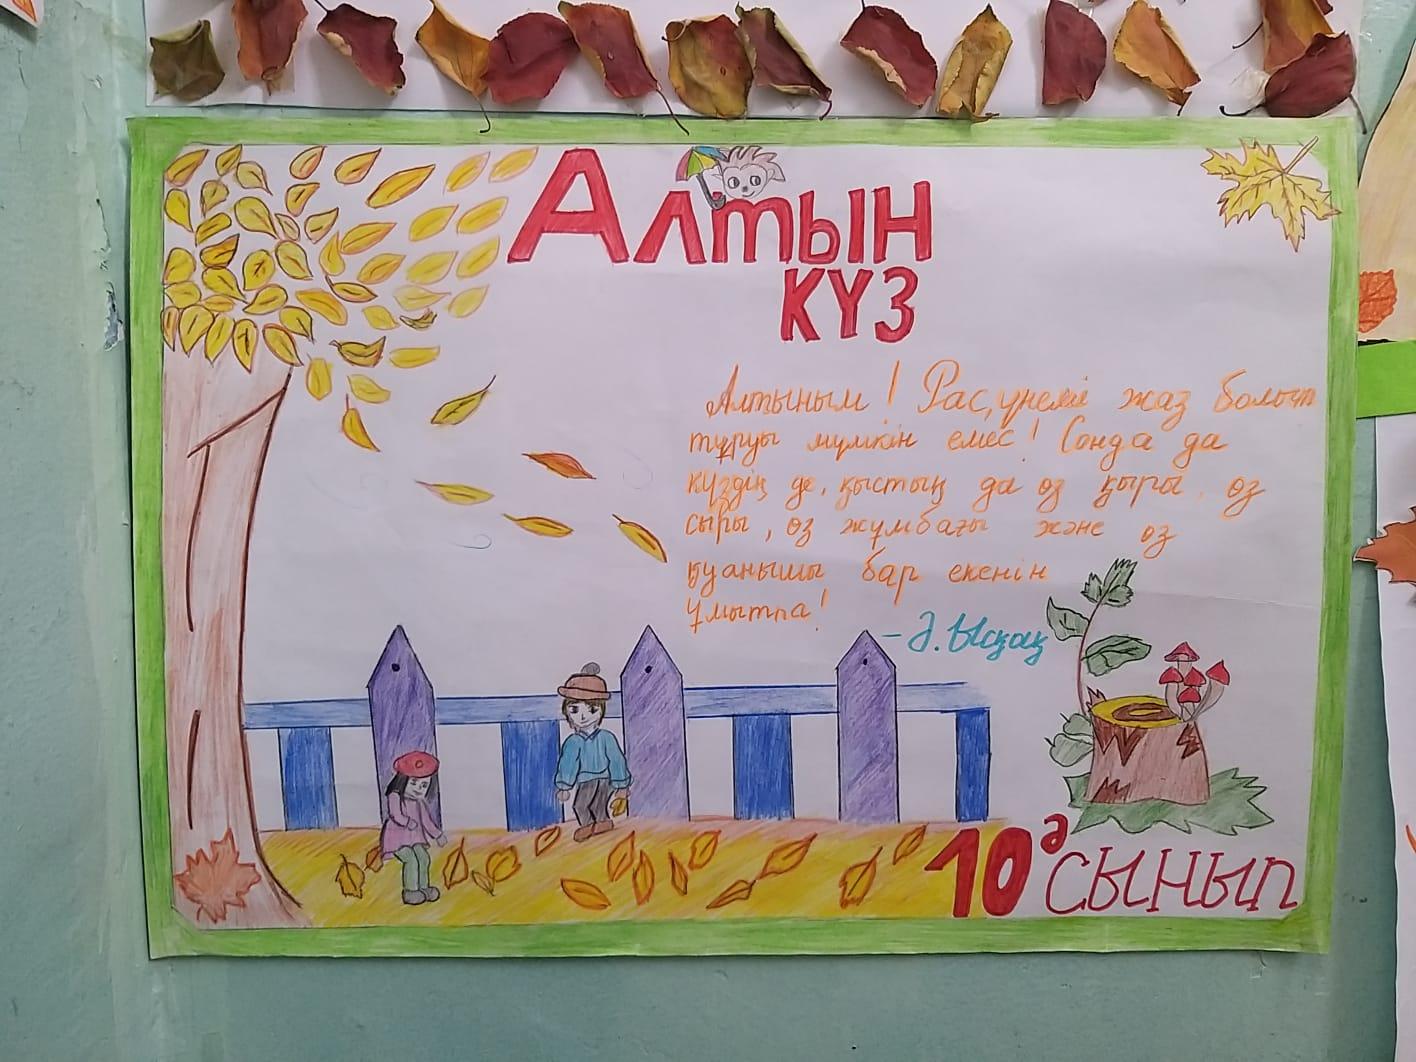 Алтын
күз
Алтыным! Рас, үнемі жаз болып
тұруы мүмкін емес! Сонда да
күздің де, қыстың да өз қыры, өз
сыры, өз жұмбағы және өз
қуанышы бар екенін
ұмытпа!
- Ә. Ысқақ
10 ә сынып